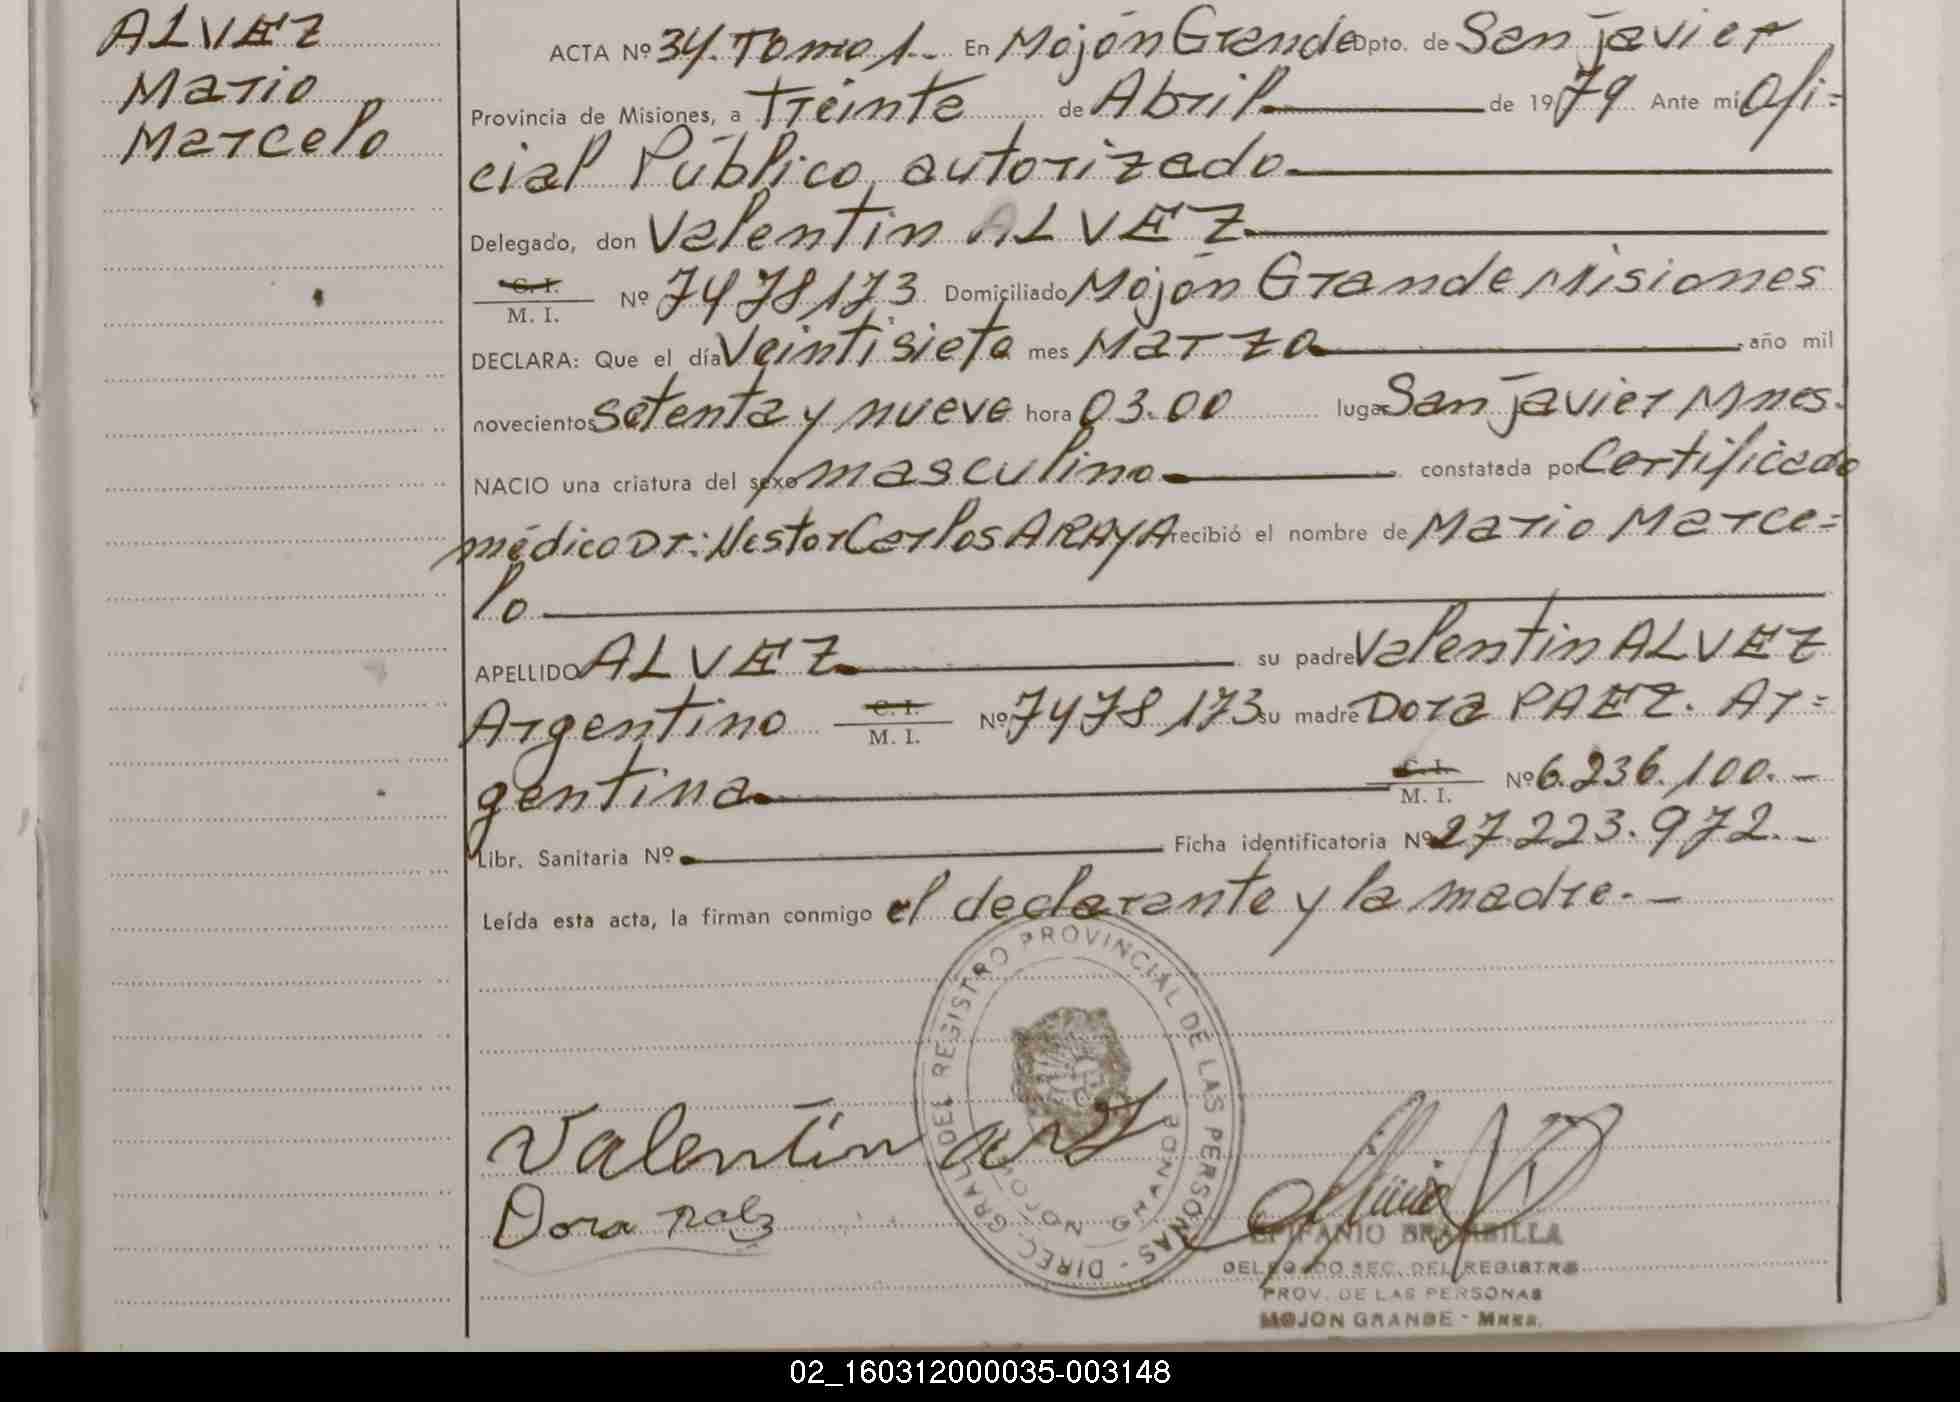 ALVEZ
Mario
Marcelo
ACTA Nº 34. Tomo 1.. En Mojón Grande Dpto. de San Javier
Provincia de Misiones, a Treinte de Abril de 1979 Ante mí Ofi=
cial Público autorizado
Delegado, don Valentin ALVEZ
C. I.
M. I. Nº 7478173 Domiciliado Mojón Grande Misiones
DECLARA: Que el día Veintisiete mes Marzo año mil
novecientos setenta y nueve hora 03.00 lugar San Javier Mnes.
NACIO una criatura del sexo masculino constatada por Certificado
médico Dr: Nestor Carlos ARAYA recibió el nombre de Mario Marce=
lo
APELLIDO ALVEZ su padre Valentin ALVEZ
Argentino C. I. M. I. Nº 7478173 su madre Dora PAEZ. Ar=
gentina C. I. M. I. Nº 6.236.100.-
Libr. Sanitaria Nº Ficha identificatoria Nº 27.223.972.-
Leída esta acta, la firman conmigo el declarante y la madre.-
DIREC. GRAL. DEL REGISTRO PROVINCIAL DE LAS PERSONAS -
MOJON GRANDE
Valentin
Dora
EPIFANIO BRAMBILLA
DELEGADO SEC. DEL REGISTRO
PROV. DE LAS PERSONAS
MOJON GRANDE - Mnes.
02_160312000035-003148